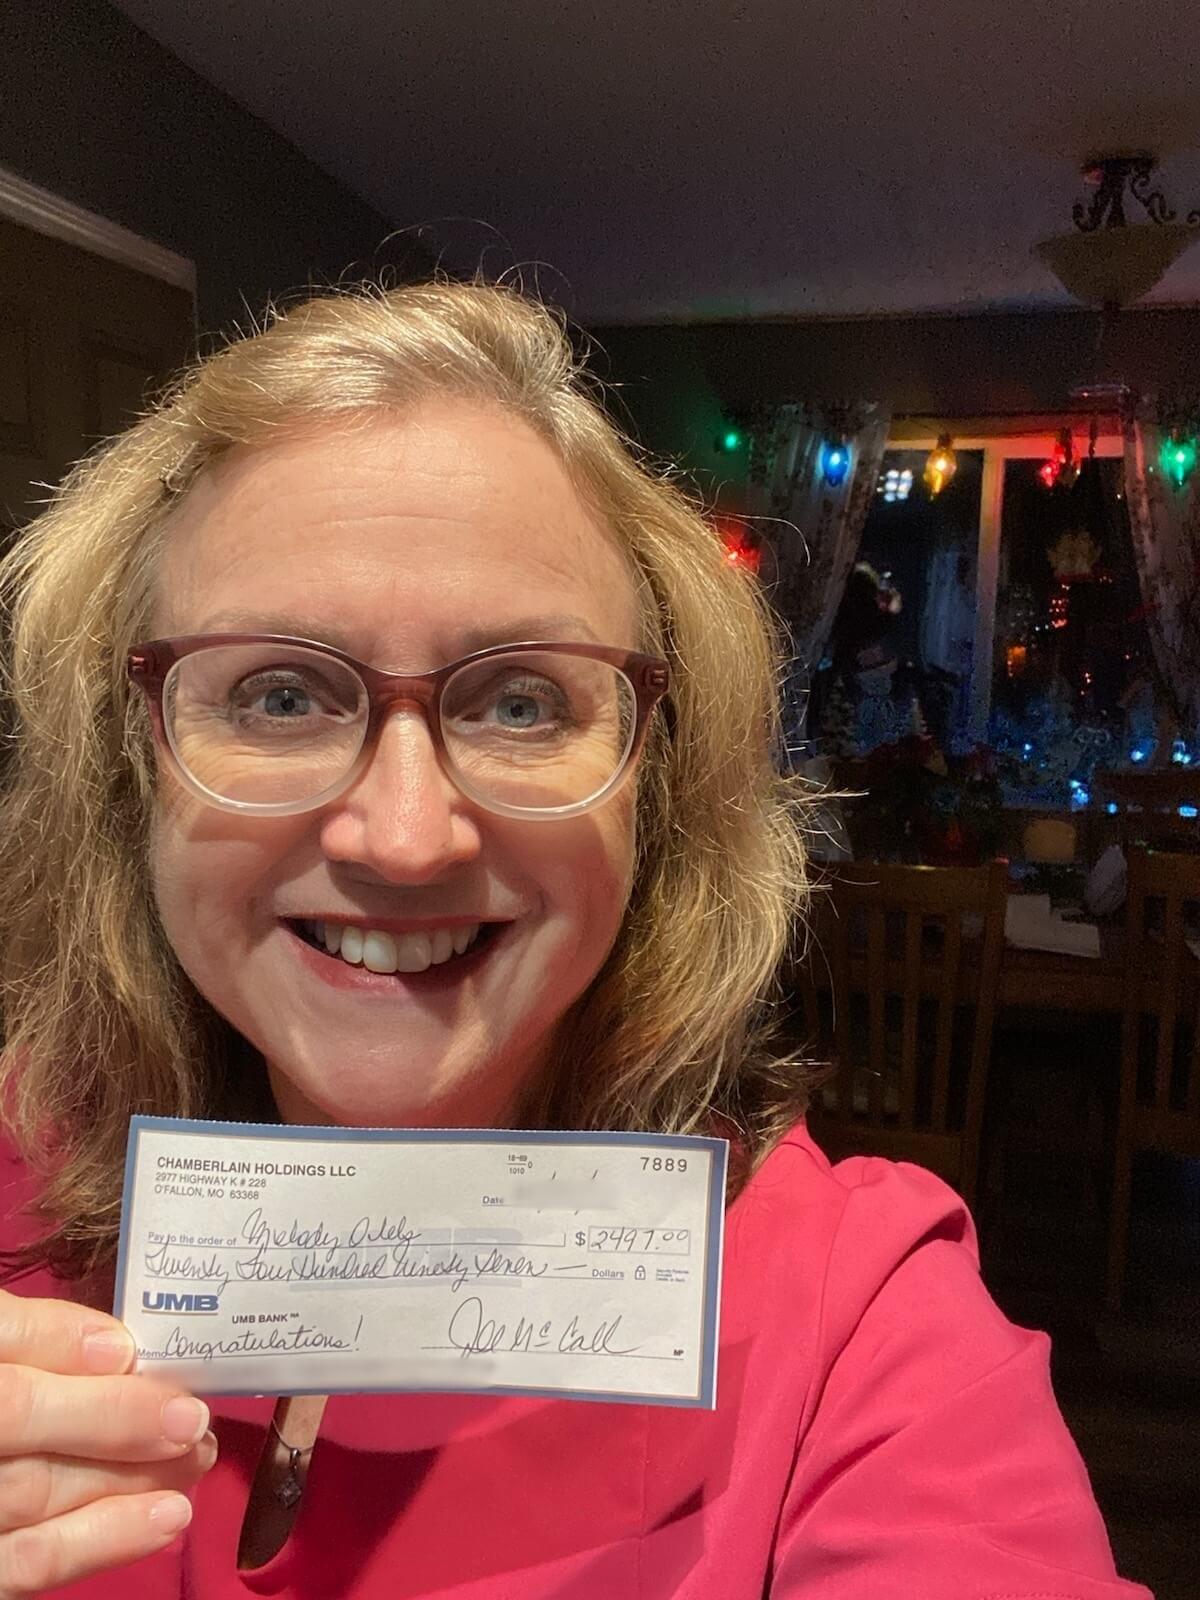 CHAMBERLAIN HOLDINGS LLC
2977 HIGHWAY K # 228
O'FALLON, MO 63368
18-69
1010
0
7889
Date
Pay to the order of Melody
$ 2497.00
Twenty Four Hundred Ninety Seven —
Dollars
UMB
UMB BANK NA
Memo Congratulations!
Joe McCall
MP